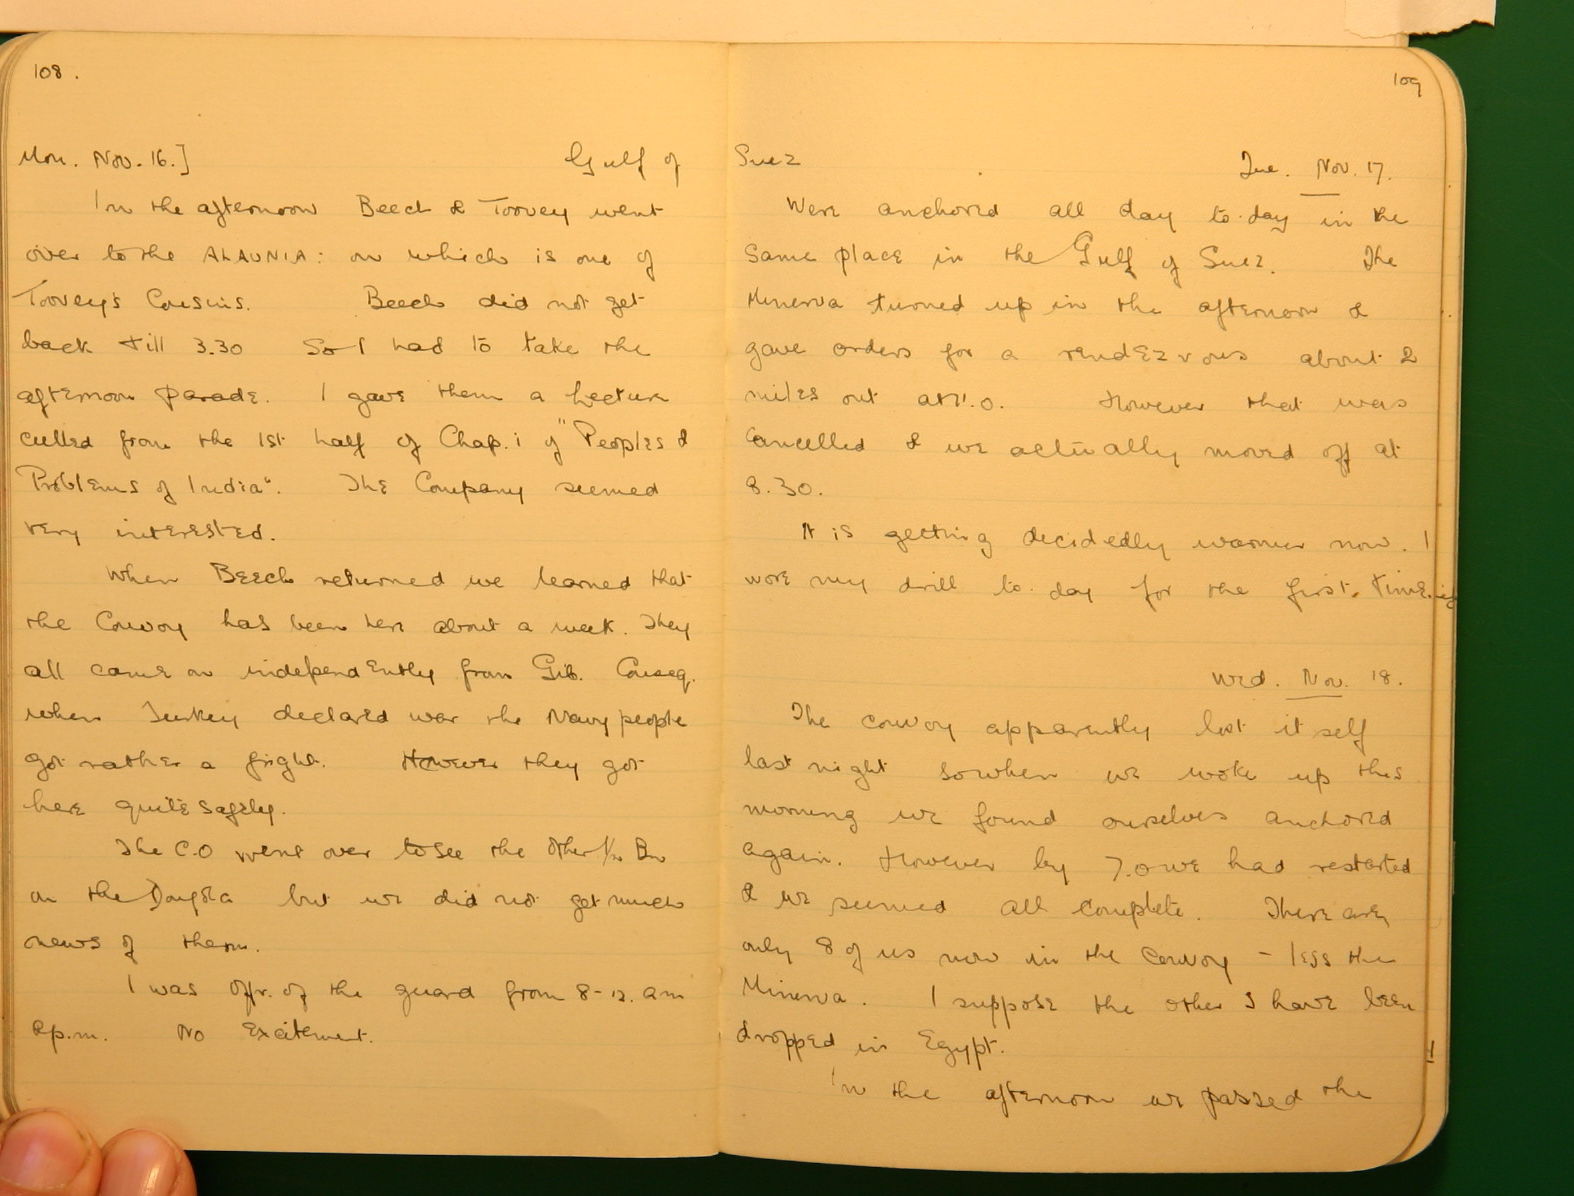 108.
Mon. Nov. 16.] Gulf of
In the afternoon Beech & Toovey went
over to the ALAUNIA: on which is one of
Toovey's Cousins. Beech did not get
back till 3.30 So I had to take the
afternoon parade. I gave them a lecture
culled from the 1st half of Chap. i of "Peoples &
Problems of India". The Company seemed
very interested.
When Beech returned we learned that
the Convoy has been here about a week. They
all came on independently from Gib. Conseq.
when Turkey declared war the Navy people
got rather a fright. However they got
here quite safely.
The C.O went over to see the other Bn
on the Dongola but we did not get much
news of them.
I was Offr. of the guard from 8-12. am
& p.m. No Excitement.
109
Suez Tue. Nov. 17.
Were anchored all day to-day in the
same place in the Gulf of Suez. The
Minerva turned up in the afternoon &
gave orders for a rendezvous about 2
miles out at 11.0. However that was
cancelled & we actually moved off at
8.30.
It is getting decidedly warmer now. I
wore my drill to-day for the first time.
Wed. Nov. 18.
The convoy apparently lost itself
last night so when we woke up this
morning we found ourselves anchored
again. However by 7.0 we had restarted
& we seemed all complete. There are
only 8 of us now in the Convoy - less the
Minerva. I suppose the other 3 have been
dropped in Egypt.
In the afternoon we passed the